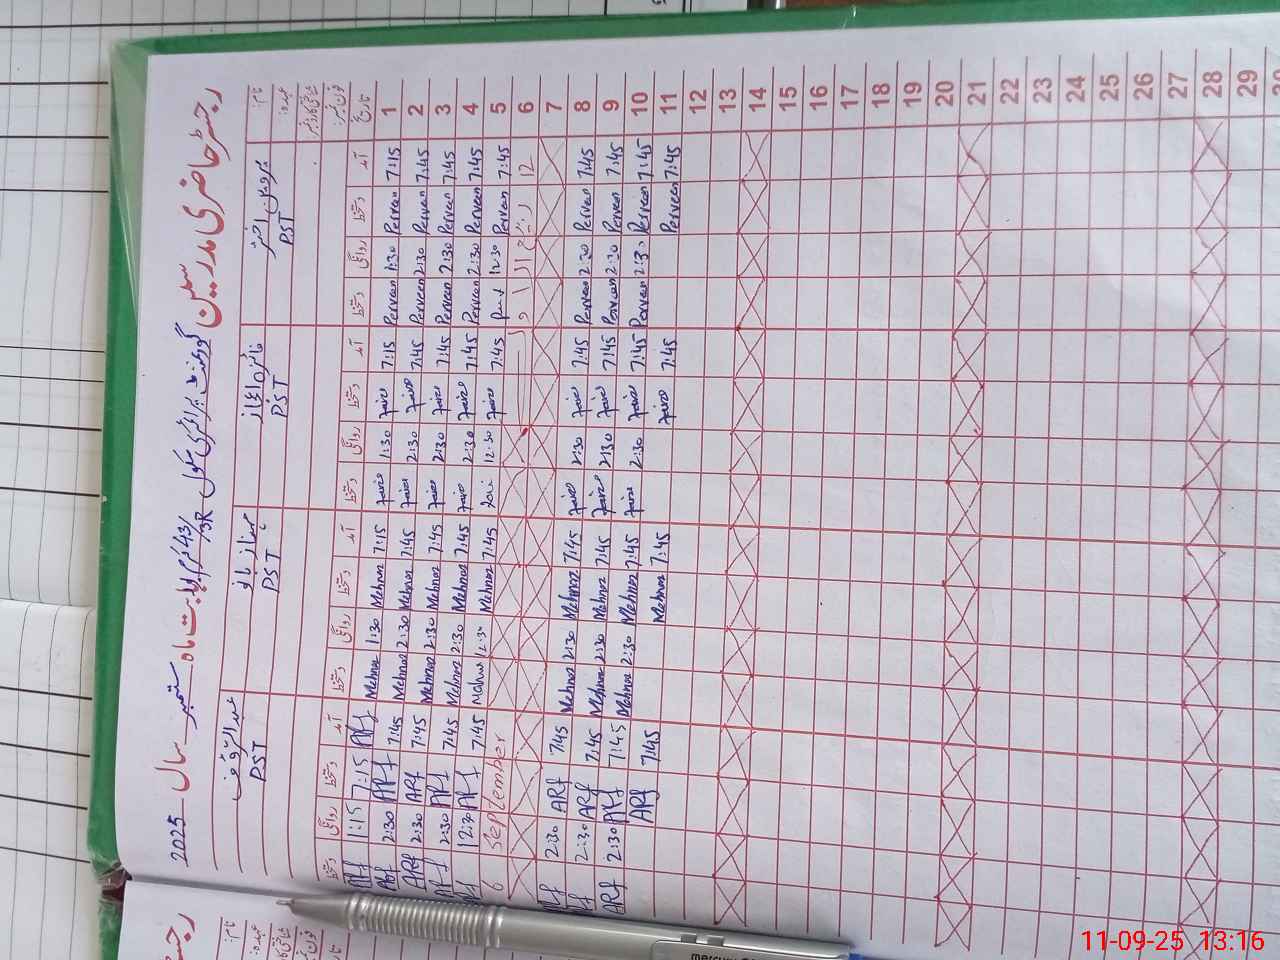 رجسٹر حاضری مدرسین گورنمنٹ پرائمری سکول 43/3R بابت ماہ ستمبر سال 2025
نام: پروین اختر فائزہ اعجاز مہناز بانو عبدالرؤف
عہدہ: PST PST PST PST
شناختی کارڈ نمبر:
فون نمبر:
تاریخ آمد دستخط روانگی دستخط آمد دستخط روانگی دستخط آمد دستخط روانگی دستخط آمد دستخط روانگی دستخط
1 7:15 Perveen 1:30 Perveen 7:15 Faiza 1:30 Faiza 7:15 Mehnaz 1:30 Mehnaz ARf 7:15 1:15 ARf
2 7:45 Perveen 2:30 Perveen 7:45 Faiza 2:30 Faiza 7:45 Mehnaz 2:30 Mehnaz 7:45 ARf 2:30 ARf
3 7:45 Perveen 2:30 Perveen 7:45 Faiza 2:30 Faiza 7:45 Mehnaz 2:30 Mehnaz 7:45 ARf 2:30 ARf
4 7:45 Perveen 2:30 Perveen 7:45 Faiza 2:30 Faiza 7:45 Mehnaz 2:30 Mehnaz 7:45 ARf 2:30 ARf
5 7:45 Perveen 12:30 7:45 Faiza 12:30 7:45 Mehnaz 12:30 7:45 ARf 12:30
6 12 ربیع الاول 6 September
7
8 7:45 Perveen 2:30 Perveen 7:45 Faiza 2:30 Faiza 7:45 Mehnaz 2:30 Mehnaz 7:45 ARf 2:30 ARf
9 7:45 Perveen 2:30 Perveen 7:45 Faiza 2:30 Faiza 7:45 Mehnaz 2:30 Mehnaz 7:45 ARf 2:30
10 7:45 Perveen 2:30 Perveen 7:45 Faiza 2:30 Faiza 7:45 Mehnaz 2:30 Mehnaz 7:45 ARf 2:30 ARf
11 7:45 Perveen 7:45 Faiza 7:45 Mehnaz 7:45 ARf
12
13
14
15
16
17
18
19
20
21
22
23
24
25
26
27
28
29
نام:
عہدہ:
11-09-25 13:16